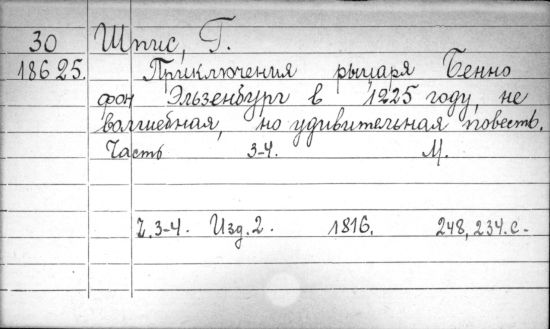 30 Шпис, Г.
18625. Приключения рыцаря Бенно
фон Эльзенбург в 1225 году, не
волшебная, но удивительная повесть.
Часть 3-4. М.
Ч. 3-4. Изд. 2. 1816. 248, 234. с.